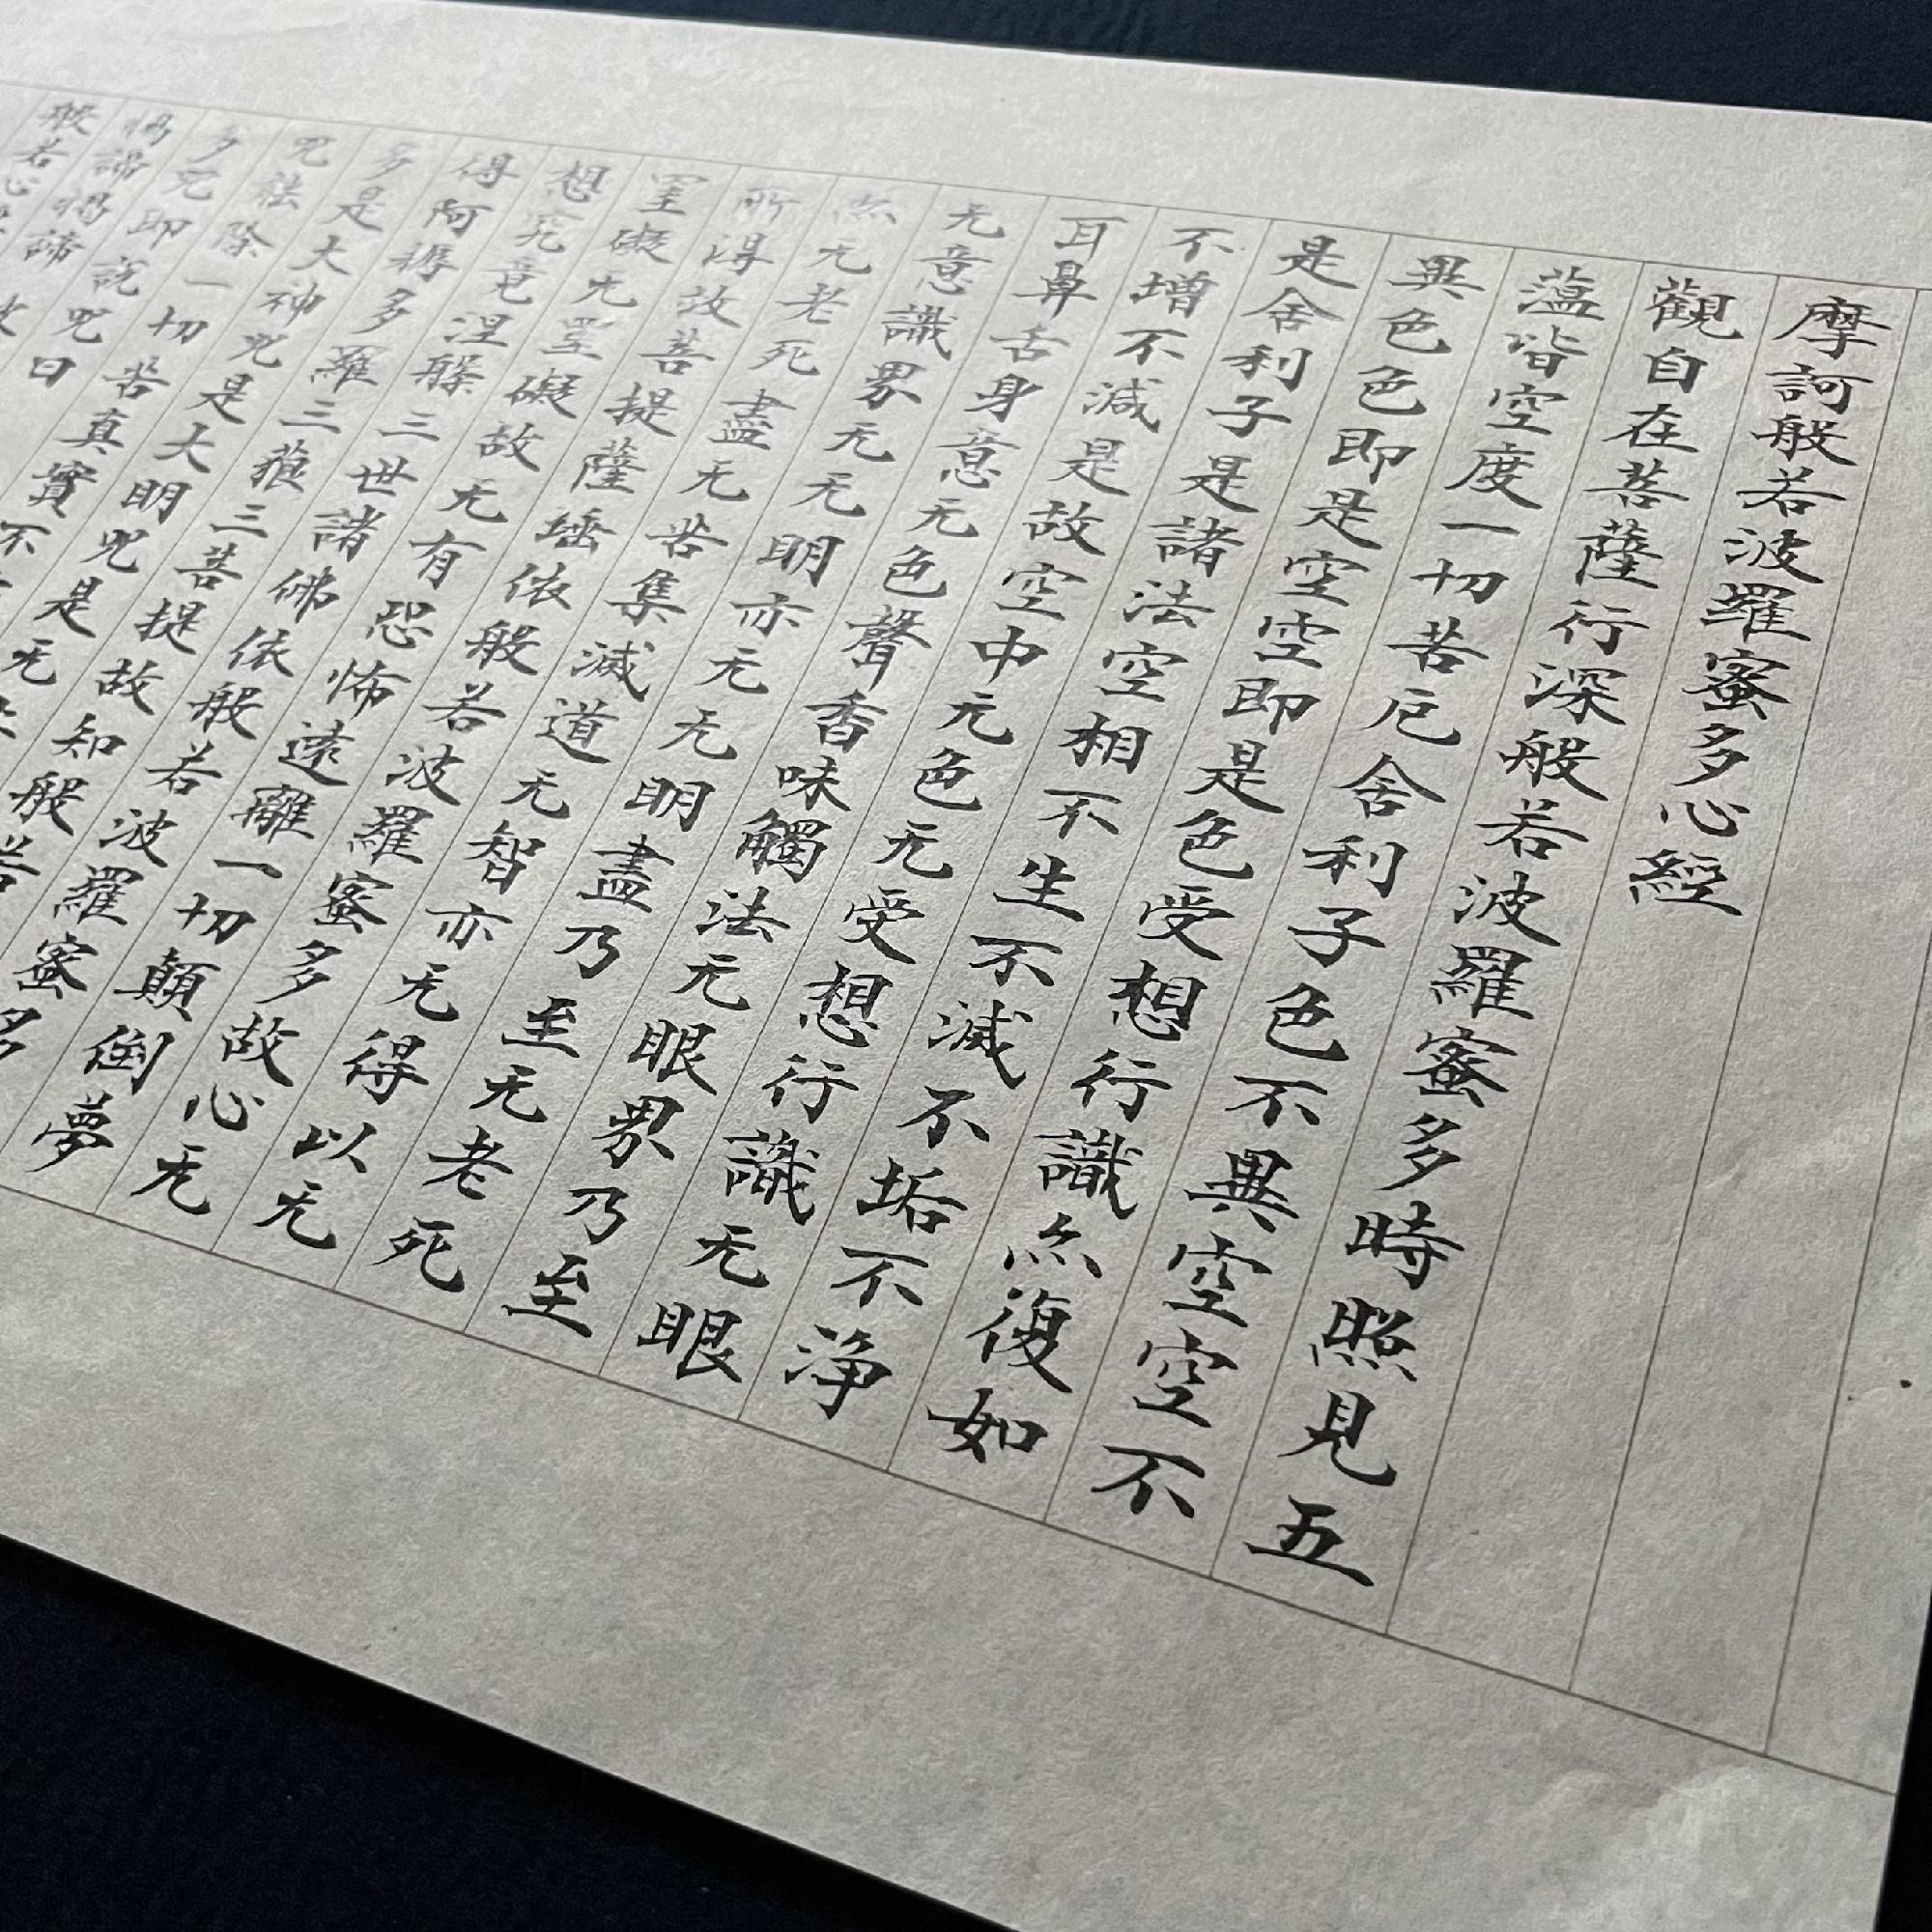 摩訶般若波羅蜜多心經
觀自在菩薩行深般若波羅蜜多時照見五
蕰皆空度一切苦厄舍利子色不異空空不
異色色即是空空即是色受想行識亦復如
是舍利子是諸法空相不生不滅不垢不浄
不增不減是故空中无色无受想行識无眼
耳鼻舌身意无色聲香味觸法无眼界乃至
无意識界无无明亦无无明盡乃至无老死
亦无老死盡无苦集滅道无智亦无得以无
所得故菩提薩埵依般若波羅蜜多故心无
罣礙无罣礙故无有恐怖遠離一切顛倒夢
想究竟涅槃三世諸佛依般若波羅蜜多
得阿耨多羅三藐三菩提故知般若
多是大神咒是大明咒是无
咒能除一切苦真實不
多咒即說咒曰
揭諦揭諦
般若心